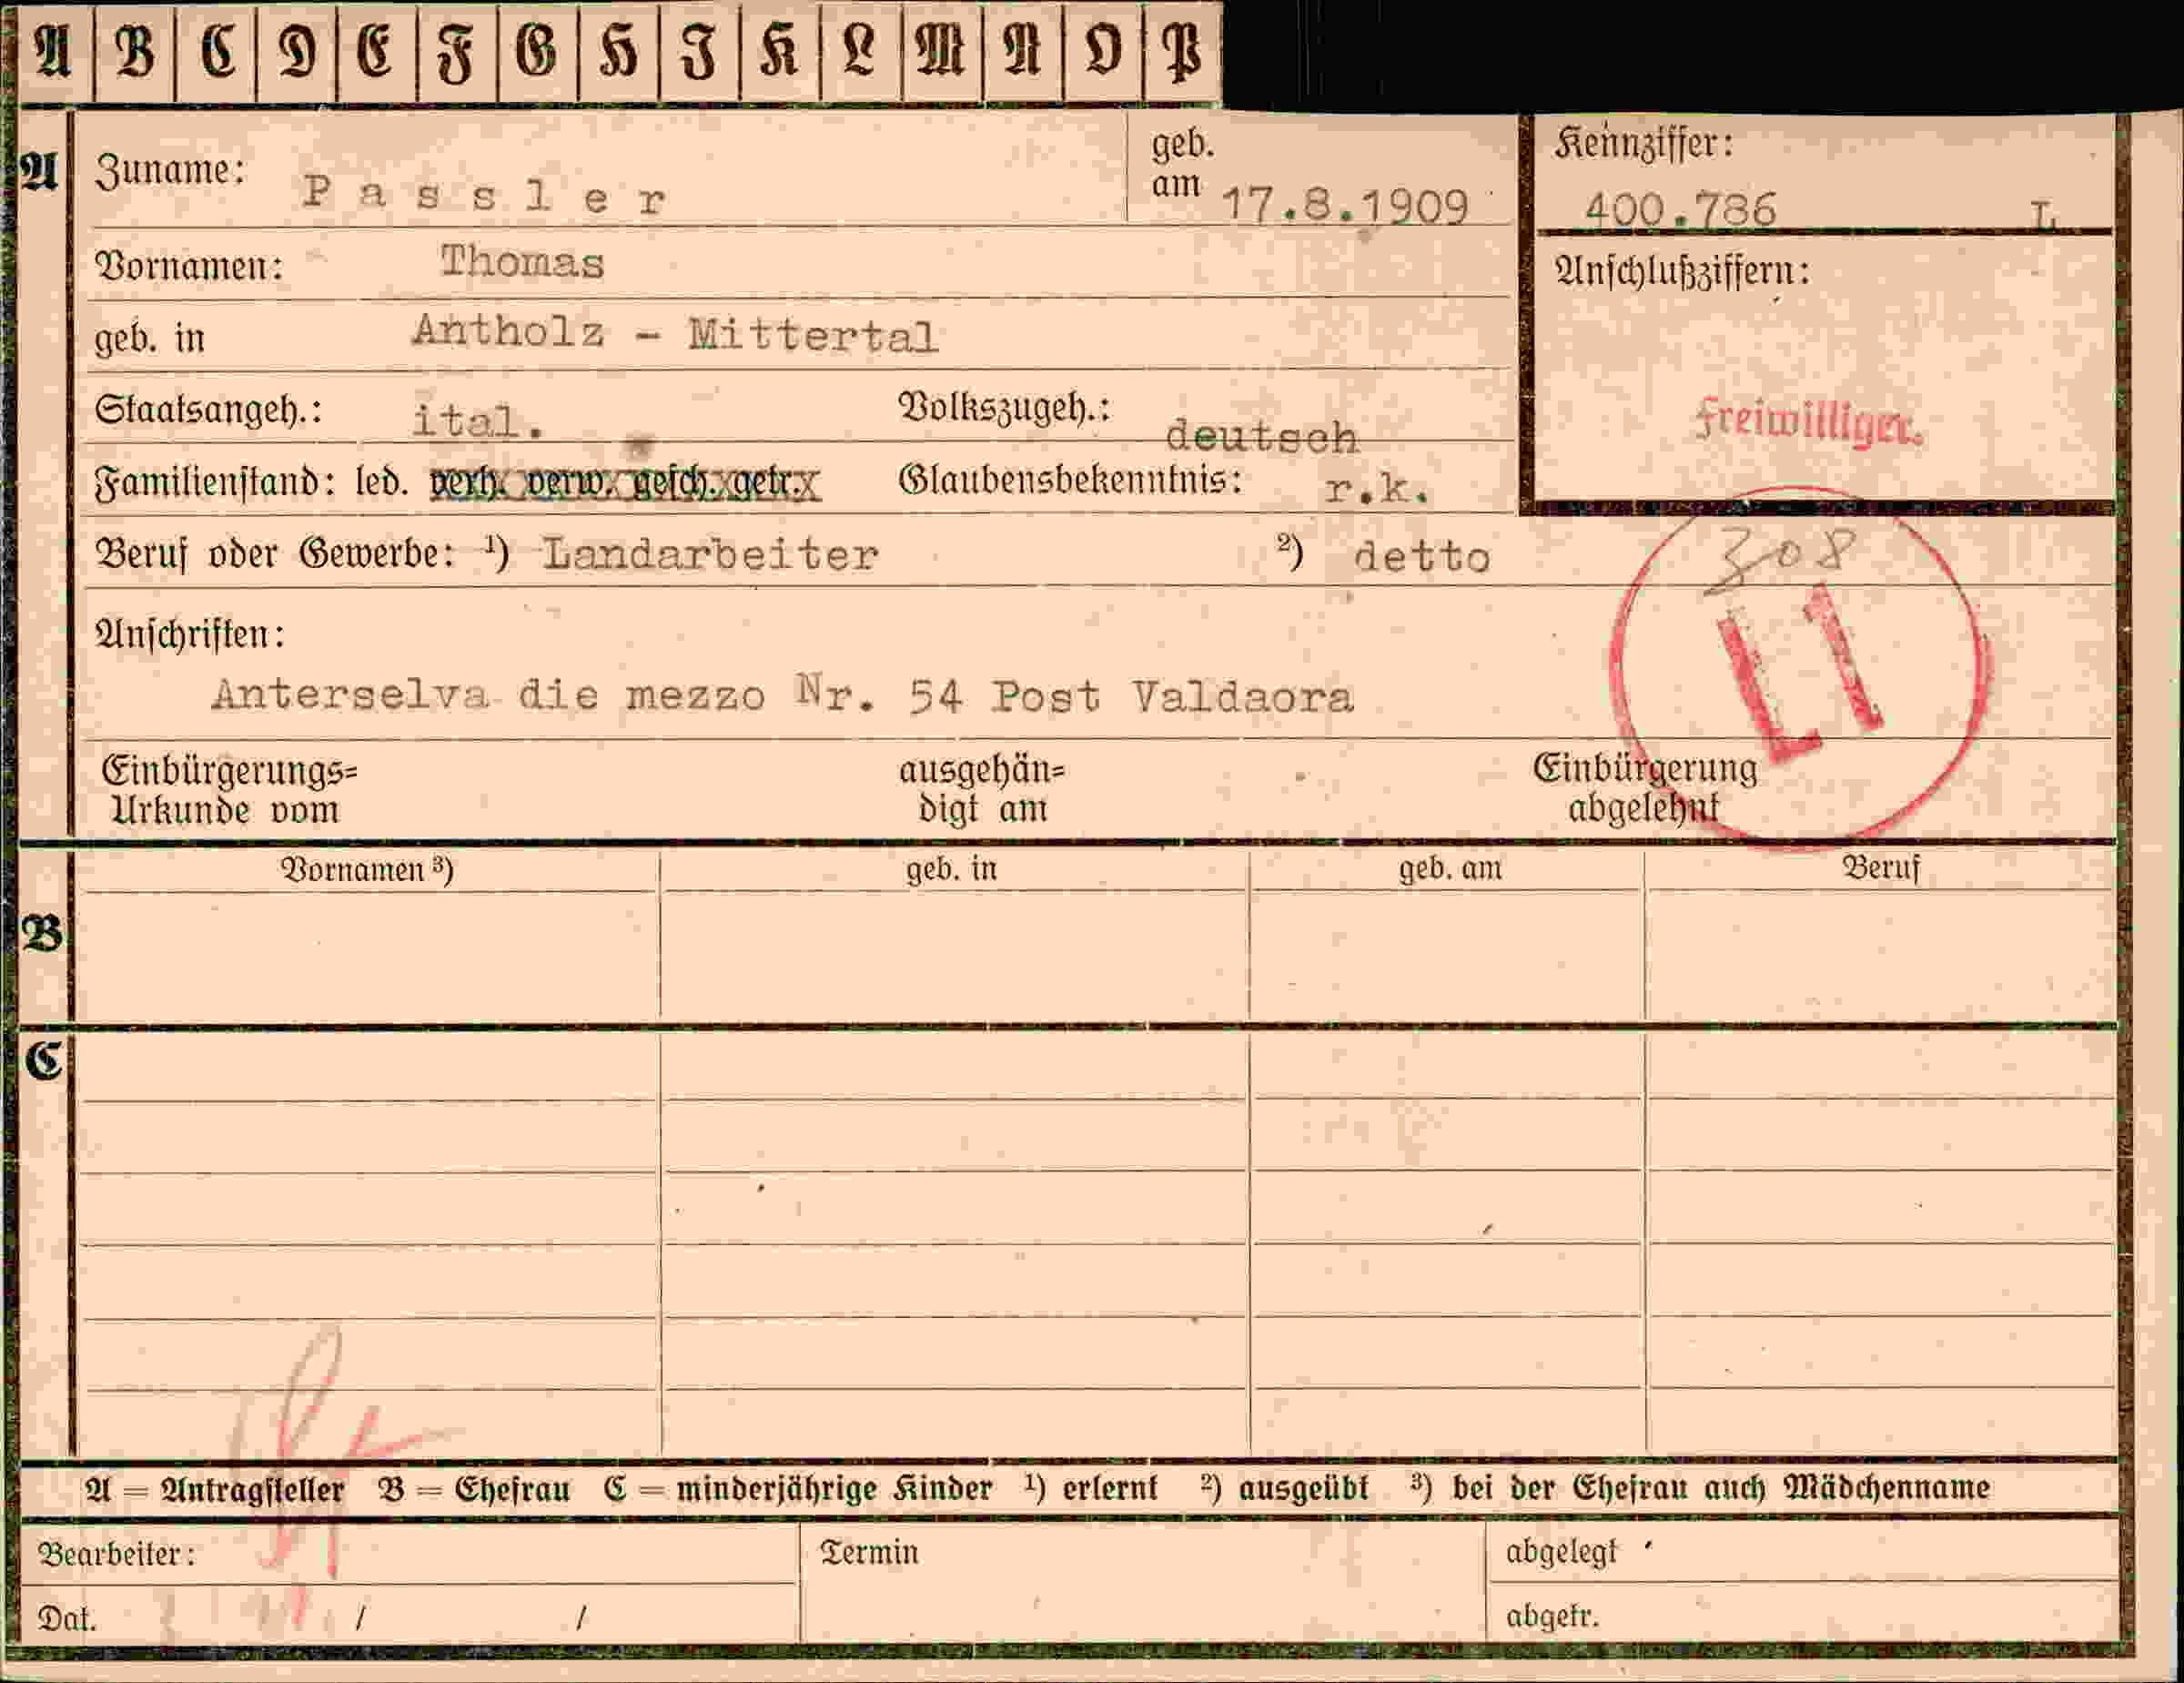 A B C D E F G H J K L M N O P
A Zuname: Passler geb. am 17.8.1909 Kennziffer: 400.786 L
Vornamen: Thomas Anschlußziffern:
geb. in Antholz - Mittertal
Staatsangeh.: ital. Volkszugeh.: deutsch Freiwilliger.
Familienstand: led. verh. verw. gesch. getr. Glaubensbekenntnis: r.k.
Beruf oder Gewerbe: ¹) Landarbeiter ²) detto 308
Anschriften: L1
Anterselva die mezzo Nr. 54 Post Valdaora
Einbürgerungs= ausgehän= Einbürgerung
Urkunde vom digt am abgelehnt
Vornamen ³) geb. in geb. am Beruf
B
C
A = Antragsteller B = Ehefrau C = minderjährige Kinder ¹) erlernt ²) ausgeübt ³) bei der Ehefrau auch Mädchenname
Bearbeiter: Termin abgelegt
Dat. / / abgetr.